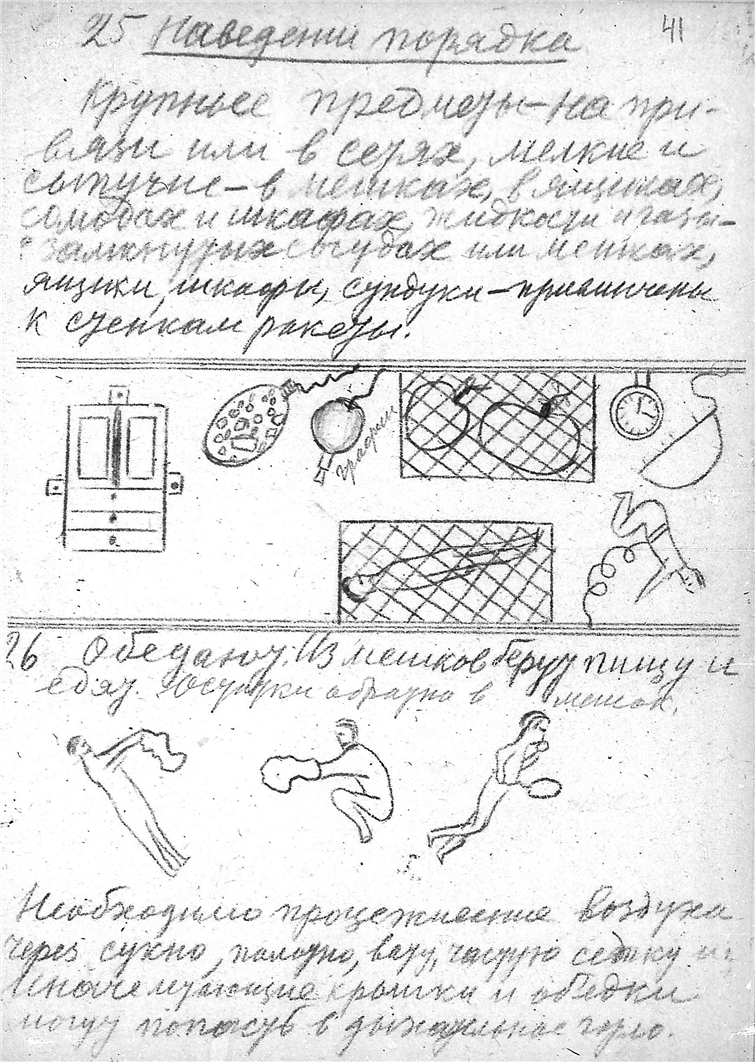 41
25 Наведении порядка
Крупные предметы – на при-
вязи или в сетях, мелкие и
сыпучие – в мешках, в ящиках,
комодах и шкафах, жидкости и газы –
в замкнутых сосудах или мешках,
ящики, шкафы, сундуки – привинчены
к стенкам ракеты.
графин
26 Обедают. Из мешков берут пищу и
едят. Остатки обратно в мешок.
Необходимо процежнение воздуха
через сукно, полотно, вату, частую сетку
Иначе летающие крошки и объедки
могут попасть в дыхательное горло.